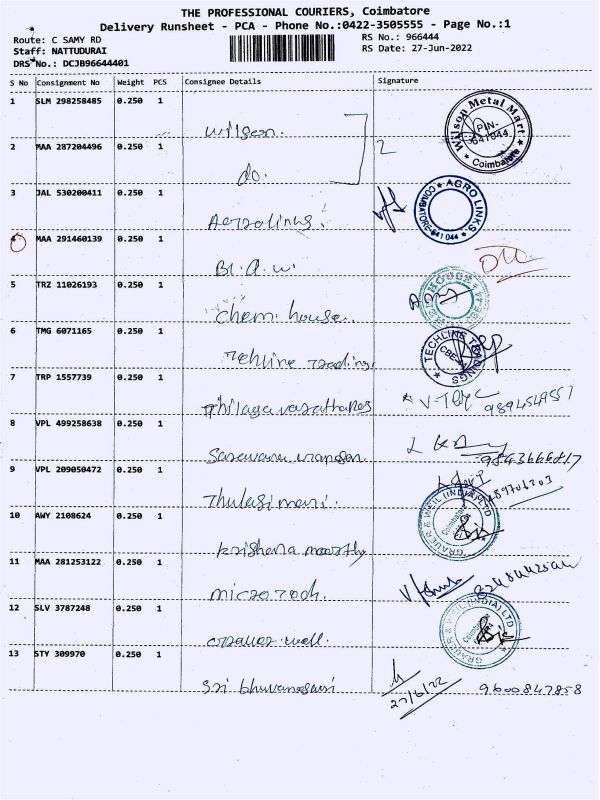 THE PROFESSIONAL COURIERS, Coimbatore
Delivery Runsheet - PCA - Phone No.:0422-3505555 - Page No.:1
Route: C SAMY RD RS No.: 966444
Staff: NATTUDURAI RS Date: 27-Jun-2022
DRS No.: DCJB96644401
S No Consignment No Weight PCS Consignee Details Signature
1 SLM 298258485 0.250 1
Wilson. Wilson Metal Mart PIN- 641044 Coimbatore
2 MAA 287204496 0.250 1 2
do.
3 JAL 530200411 0.250 1
Aerrolinks. AGRO LINKS COIMBATORE-641 044
4 MAA 291460139 0.250 1
BL.A.W.
5 TRZ 11026193 0.250 1
Chem. house.
6 TMG 6071165 0.250 1
Techline Trading. TECHLINE TRADINGS CBE-
7 TRP 1557739 0.250 1
9894549557
8 VPL 499258638 0.250 1
9843666817
9 VPL 209050472 0.250 1
Thulasimani.
10 AWY 2108624 0.250 1 GRAUER & WEIL (INDIA) LTD Coimbatore
krishana moorthy
11 MAA 281253122 0.250 1
micro tech.
12 SLV 3787248 0.250 1 GRAUER & WEIL (INDIA) LTD Coimbatore
Grauer well.
13 STY 309970 0.250 1
Sri bhuvaneswari 27/6/22 9600847858